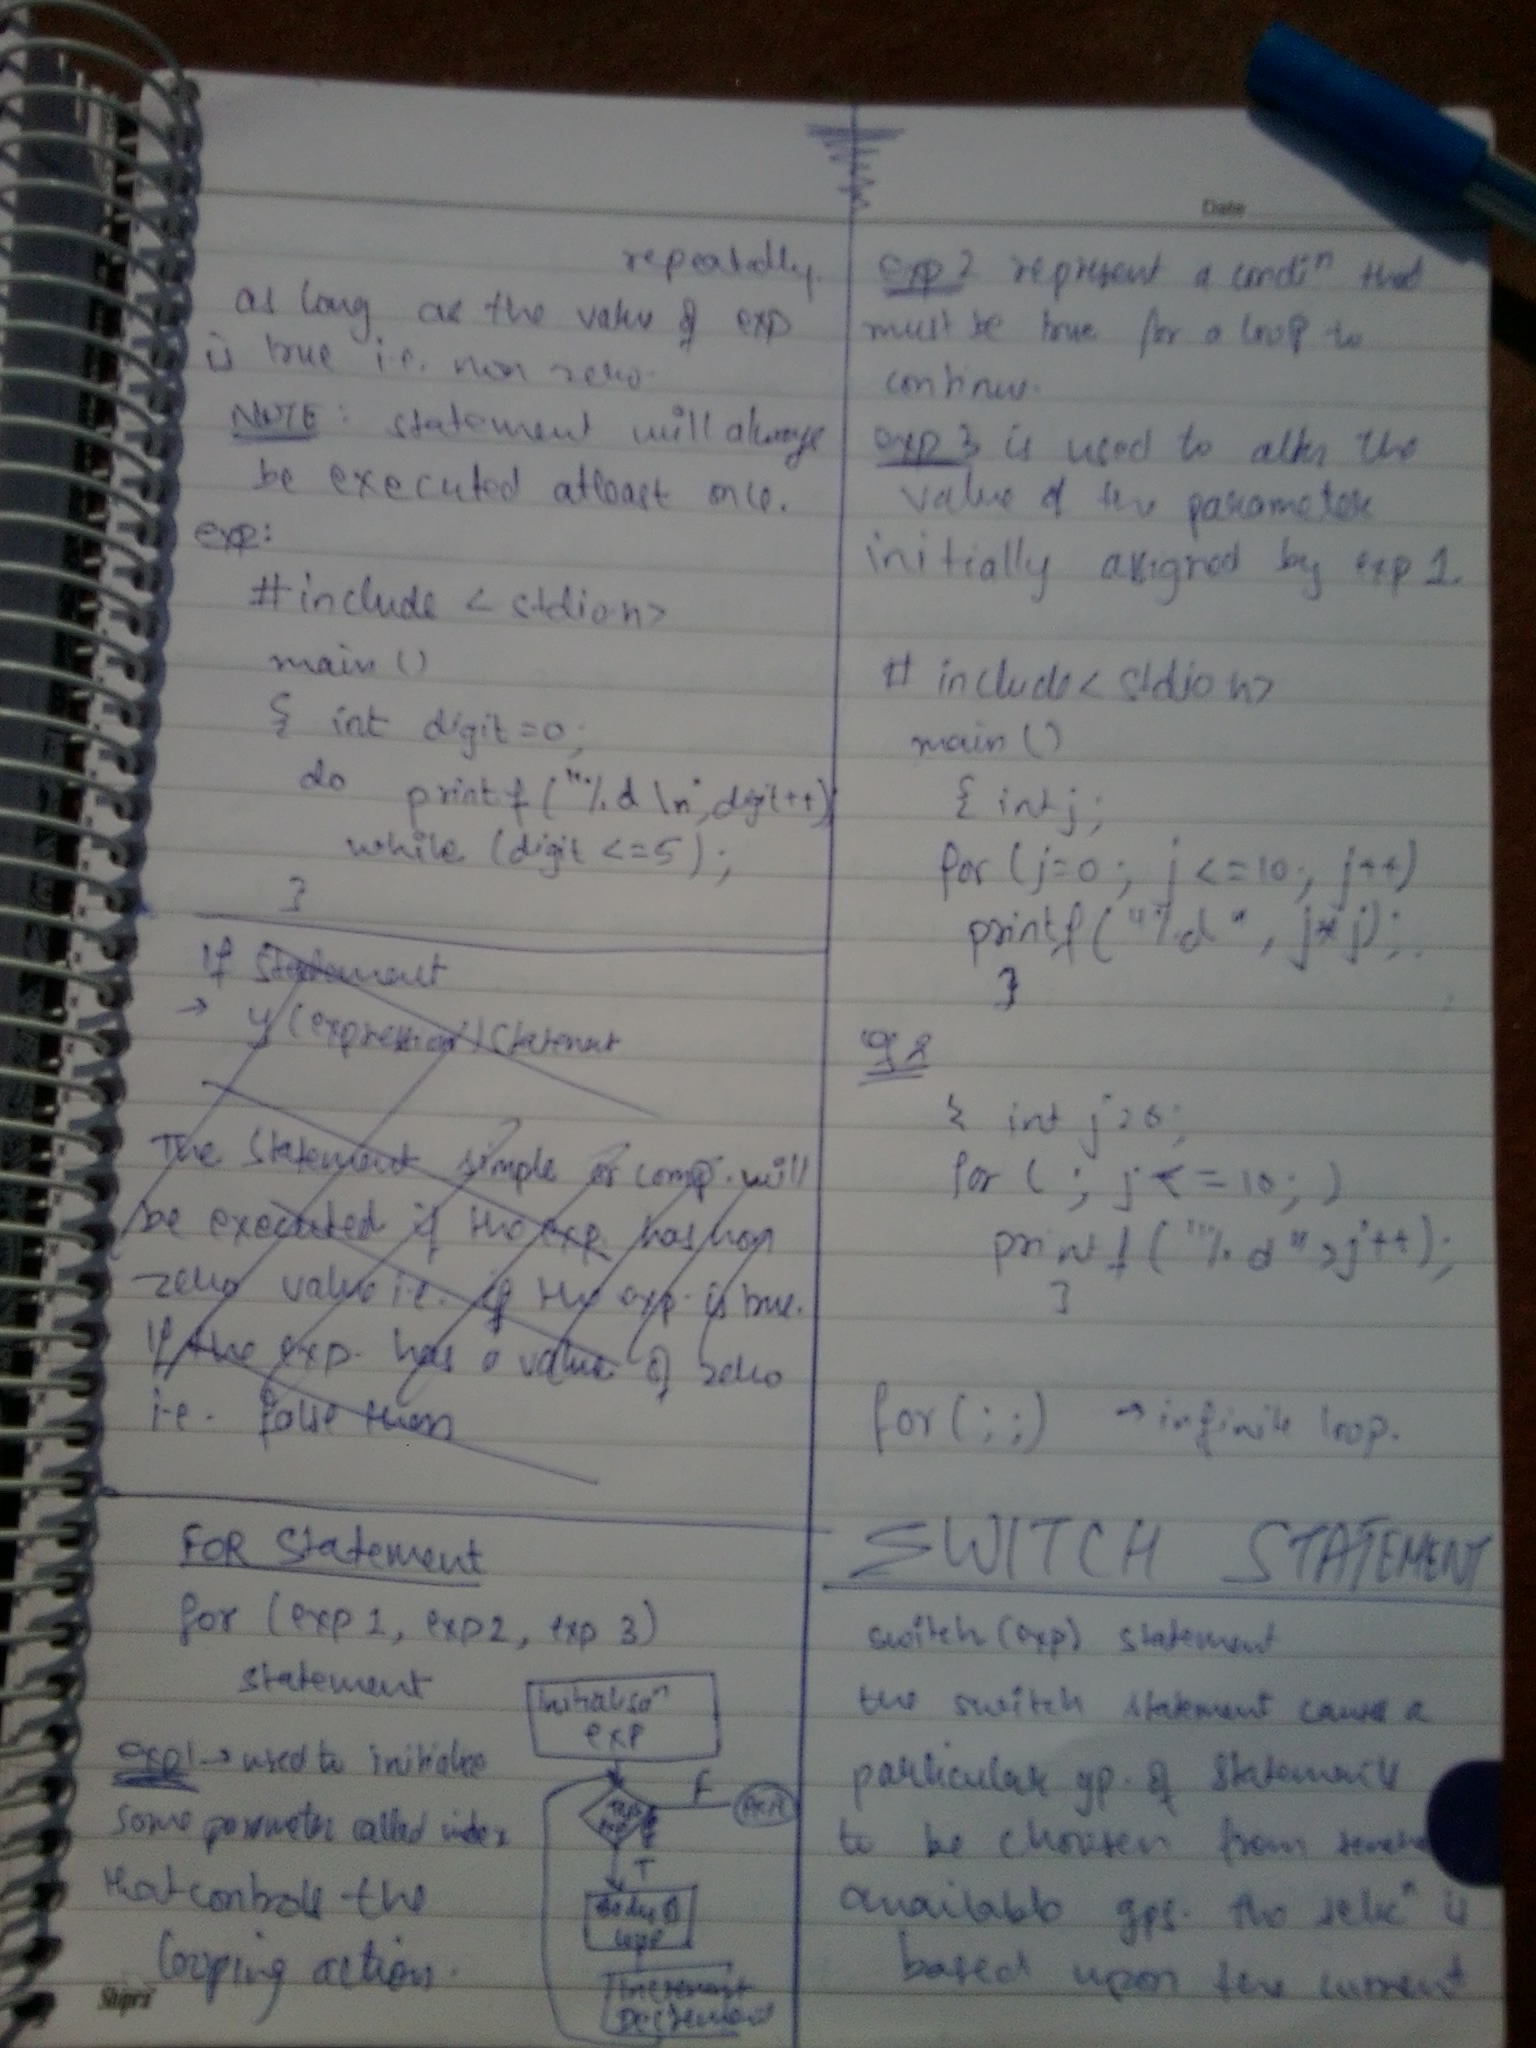 Date
repeatdly.
as long as the value of exp
is true i.e. non zero.
NOTE: statement will always
be executed atleast once.
exp:
#include <stdio.h>
main()
{ int digit=0;
do printf("%d\n", digit++);
while (digit <=5);
}
If Statement
→ if (expression) Statement
The Statement simple or comp. will
be executed if the exp. has non
zero value i.e. if the exp. is true.
If the exp. has a value of zero
i.e. false then
FOR Statement
for (exp 1, exp2, exp 3)
statement
exp1 → used to initialise
some parameter called index
that controls the
looping action.
Initialisoⁿ
exp
F
T
Body of
loop
Increment
Decrement
Shipra
exp 2 represent a condiⁿ that
must be true for a loop to
continue.
exp 3 is used to alter the
value of the parameter
initially assigned by exp 1.
# include <stdio.h>
main()
{ int j;
for (j=0; j<=10; j++)
printf("%d", j*j);
}
{ int j=0;
for ( ; j<=10; )
printf("%d", j++);
}
for(;;) → infinite loop.
SWITCH STATEMENT
switch(exp) statement
the switch statement cause a
particular gp. of statements
to be chousen from
available gps. the selecⁿ is
based upon the current